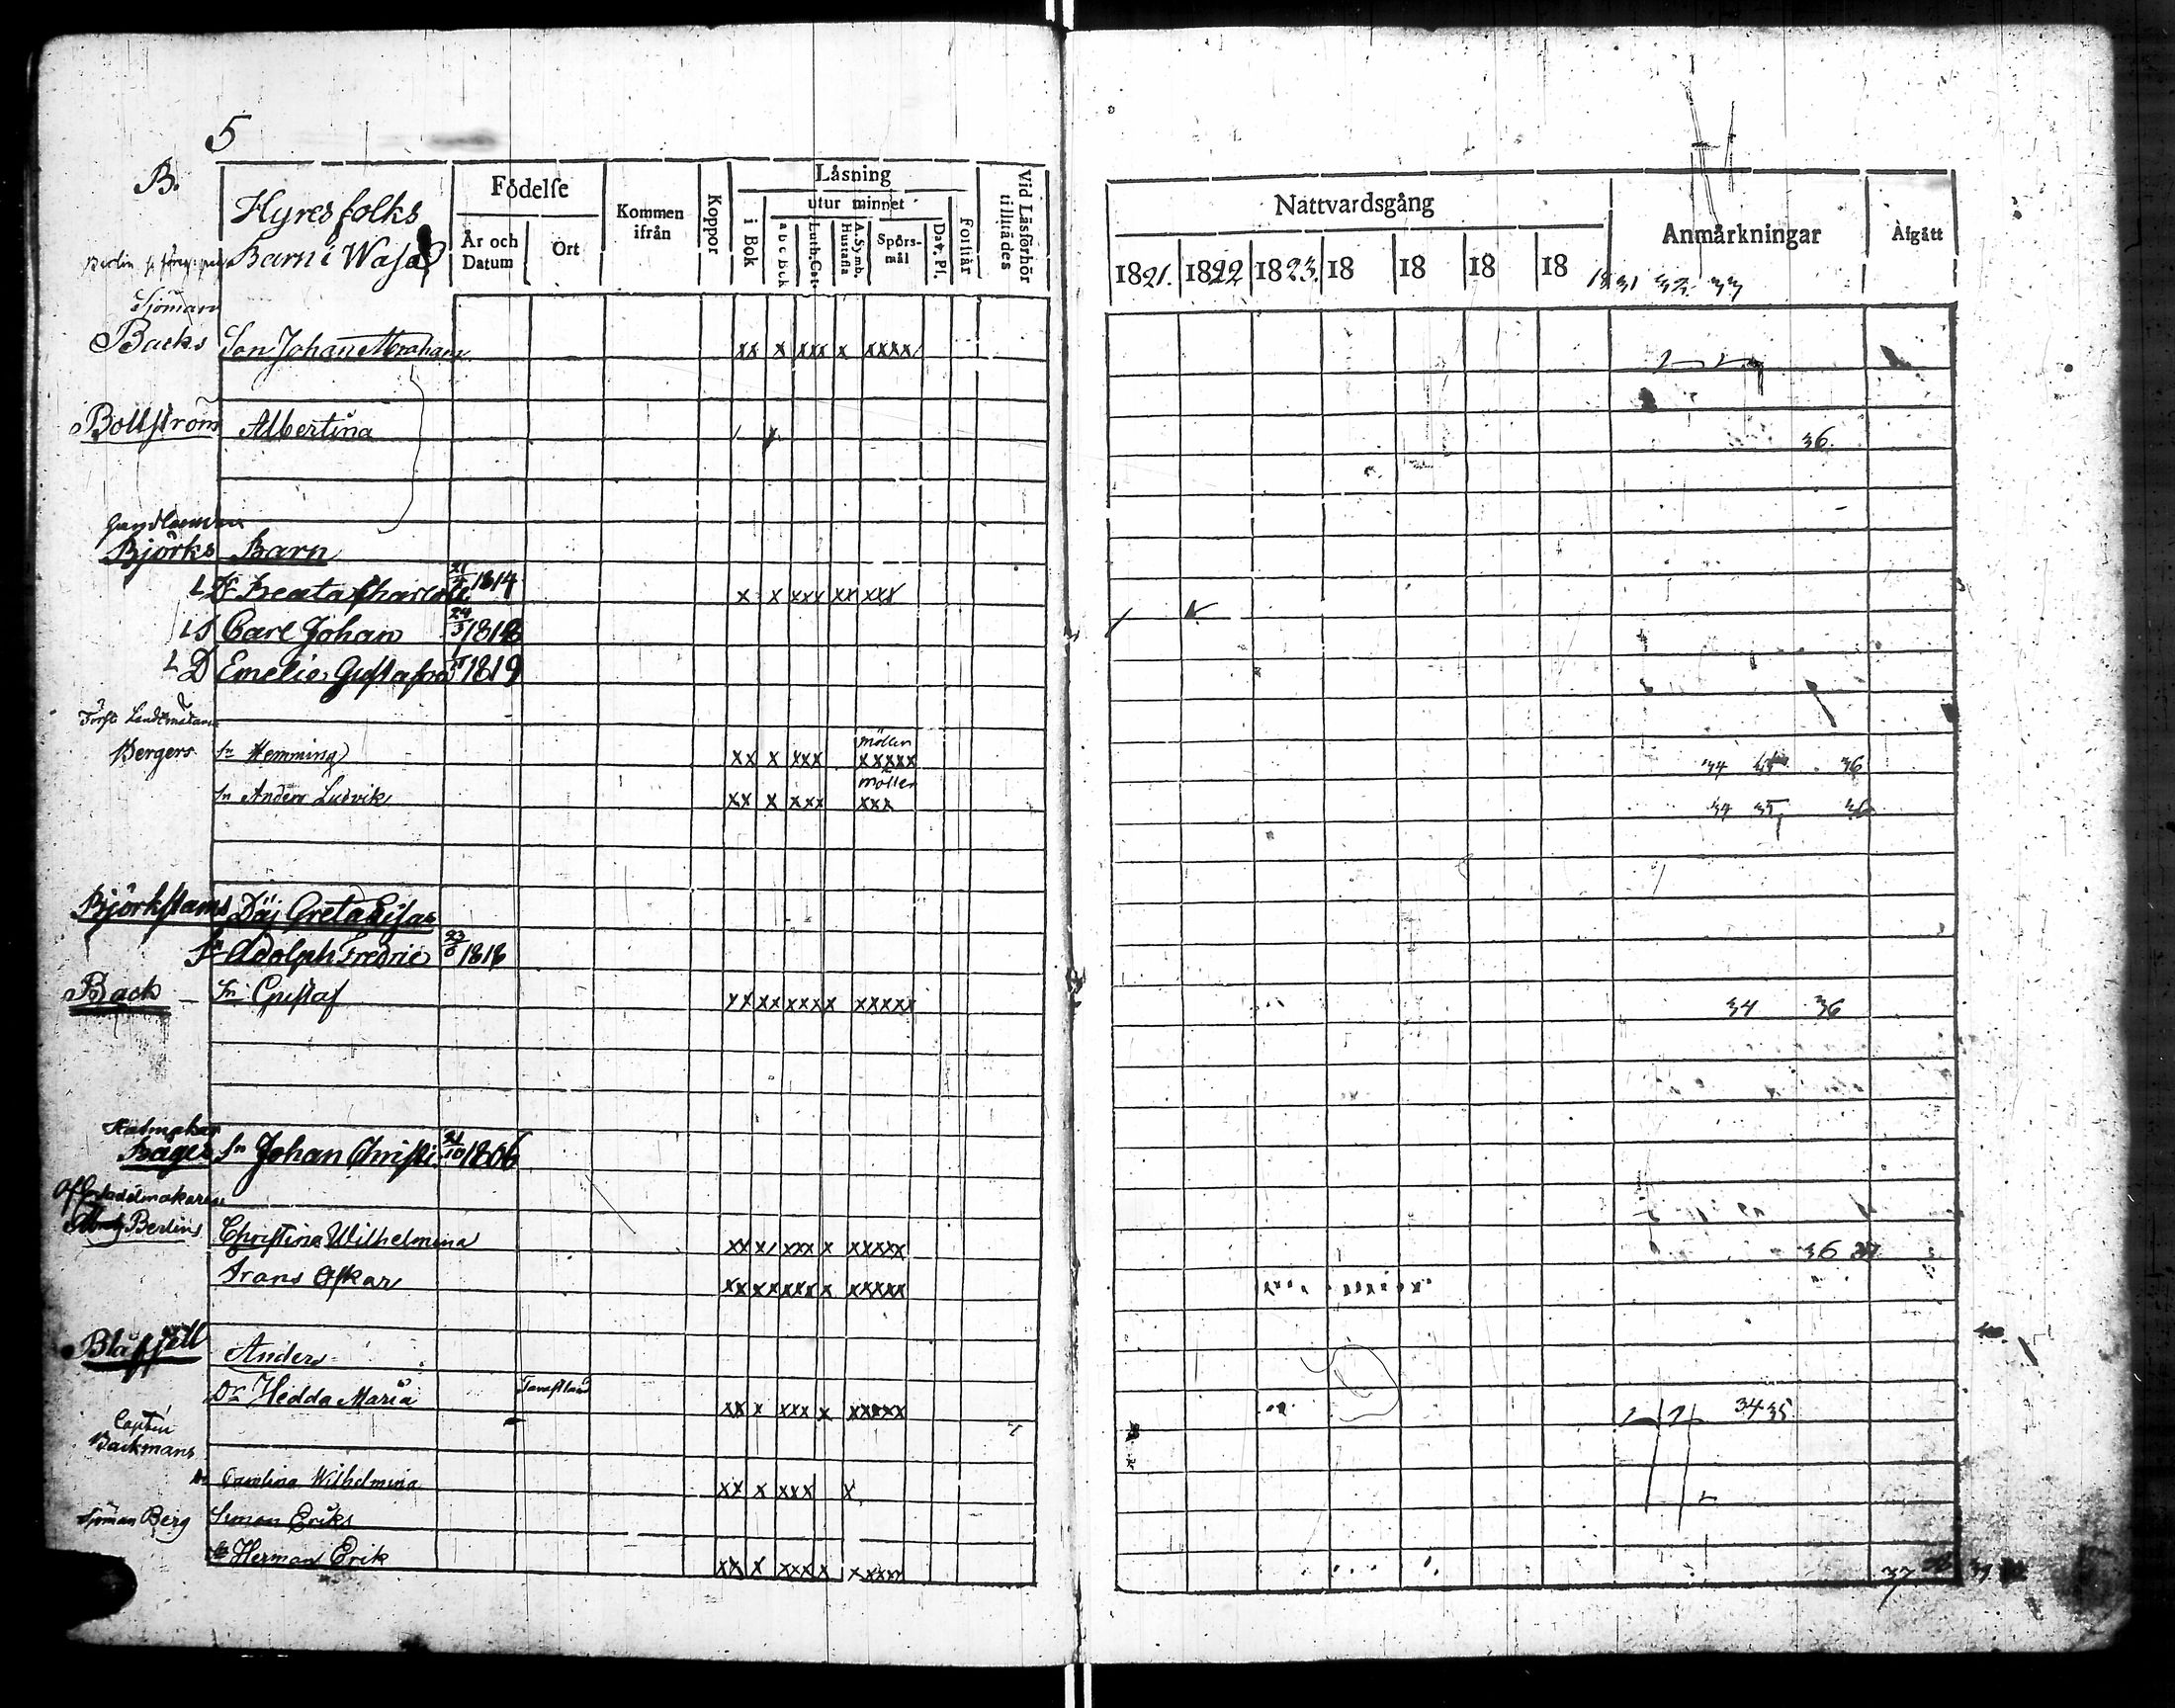 5
B.
Hyresfolks
Barn i Wasa
Födelse
År och Datum
Ort
Kommen ifrån
Koppor
Låsning
i Bok
utur minnet
a b c Bok
Luth. Cat.
A. Symb. Hustafla
Spörsmål
Dav. Ps.
Förstår
Vid Låsförhör tillstädes
Nattvardsgång
1821. 1822 1823. 18 18 18 18
Anmärkningar
Afgått
1831 32 33
Berlin
Sjöman
Backs Son Johan Abraham xx x xxx x xxxx
Bollström Albertina
36.
Björks Barn
Dr Beata Charlotte 1814 x x xxx xx xxx
S Carl Johan 24/3 1818
D Emelie Gustafva 1819
Först Landtmätare
Bergers Sn Hemming xx x xxx Möller xxxxx
34 36
Sn Anders Ludvik xx x xxx Möller xxx
34 35 36
Björkstams Däj Greta Lisa
Sn Adolph Fredric 1818
Back Sn Gustaf xx xx xxxx xxxxx
34 36
Hatmakar
Bager Sn Johan Christi. 21/10 1806
Sadelmakaren
Berlins Christina Wilhelmina xx x xxx x xxxxx
36 37
Frans Oskar xx xx xxx x xxxxx
Blåfjell
Anders
Dr Hedda Maria Tavastland xx x xxx x xxxxx
34 35
Capten
Backmans
Carolina Wilhelmina xx x xxx x
Sjöman Berg Simon Eriks
Herman Erik xx x xxx x xxxxx
37